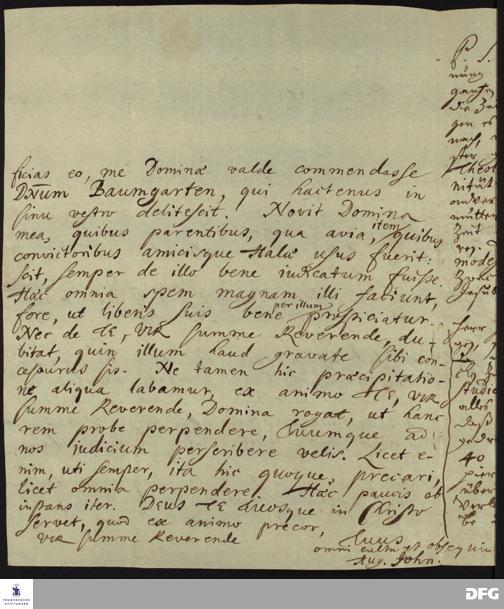 ficias eo, me Dominæ valde commendasse
Dnum Baumgarten, qui hactenus in
sinu vestro delitescit. Novit Domina
mea, quibus parentibus, qua avia, item quibus
convictoribus amicisque Halæ usus fuerit:
scit, semper de illo bene iudicatum fuisse.
Hæc omnia spem magnam illi faciunt,
fore, ut liberis suis bene per illum prospiciatur.
Nec de TE, VIR summe Reverende, du-
bitat, quin illum haud gravate sibi con-
cessurus sis. Ne tamen hic præcipitatio-
ne aliqua labamur, ex animo TE, VIR
summe Reverende, Domina rogat, ut hanc
rem probe perpendere, tuumque ad
nos iudicium perscribere velis. Licet e-
nim, uti semper, ita hic quoque, precari,
licet omnia perpendere. Hæc paucis ob
instans iter. DEUS TE tuosque in Christo
servet, quod ex animo precor,
VIR summe Reverende
Tuus
omni cultu et obsequio
Aug. John.
P. S.
nung
gantzen
die
gen es
nach,
Theol
nität
ander
mütter
Zeit
rey.
mode
Herr
gen,
Studio
alles
daß
40
hier
über
FRANCKESCHE
STIFTUNGEN
DFG